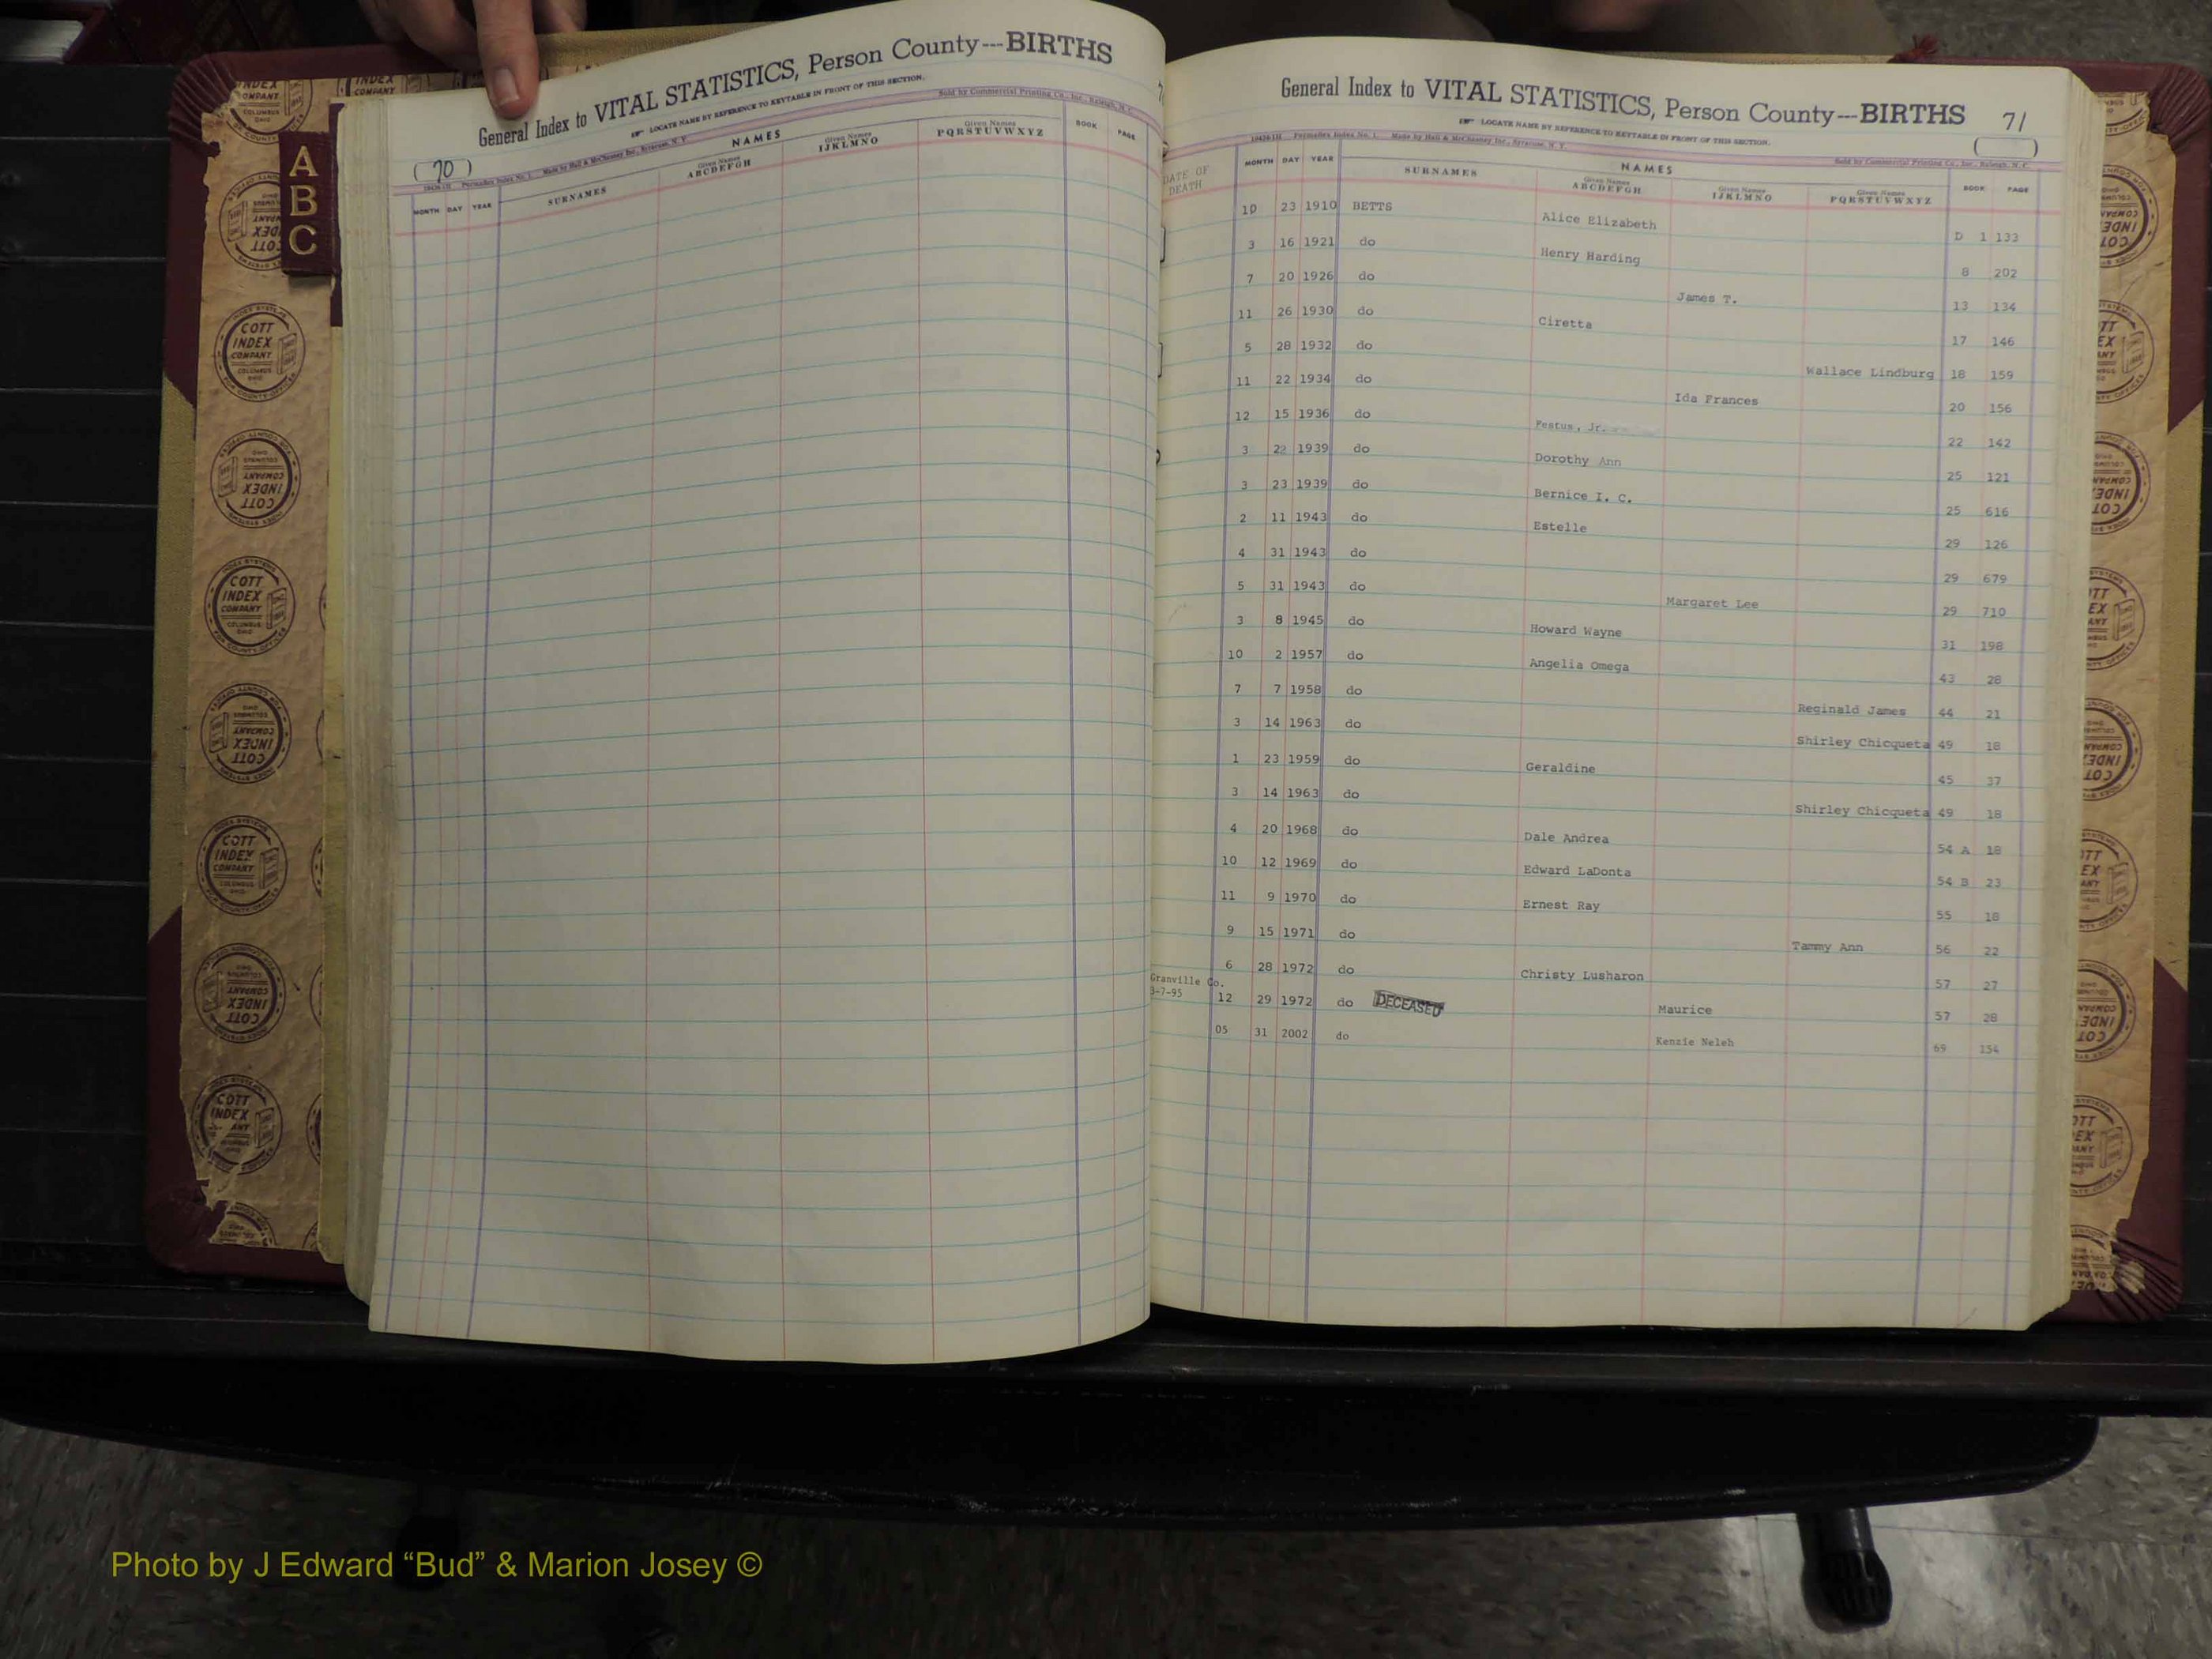 A
B
C
General Index to VITAL STATISTICS, Person County---BIRTHS
LOCATE NAME BY REFERENCE TO KEYTABLE IN FRONT OF THIS SECTION.
(70)
Made by Hall & McChesney Inc., Syracuse, N. Y.
Sold by Commercial Printing Co., Inc., Raleigh, N. C.
NAMES
MONTH DAY YEAR SURNAMES Given Names ABCDEFGH Given Names IJKLMNO Given Names PQRSTUVWXYZ BOOK PAGE
General Index to VITAL STATISTICS, Person County---BIRTHS 71
LOCATE NAME BY REFERENCE TO KEYTABLE IN FRONT OF THIS SECTION.
Made by Hall & McChesney Inc., Syracuse, N. Y.
Sold by Commercial Printing Co., Inc., Raleigh, N. C.
NAMES
DATE OF DEATH MONTH DAY YEAR SURNAMES Given Names ABCDEFGH Given Names IJKLMNO Given Names PQRSTUVWXYZ BOOK PAGE
10 23 1910 BETTS Alice Elizabeth D 1 133
3 16 1921 do Henry Harding 8 202
7 20 1926 do James T. 13 134
11 26 1930 do Ciretta 17 146
5 28 1932 do Wallace Lindburg 18 159
11 22 1934 do Ida Frances 20 156
12 15 1936 do Festus, Jr. 22 142
3 22 1939 do Dorothy Ann 25 121
3 23 1939 do Bernice I. C. 25 616
2 11 1943 do Estelle 29 126
4 31 1943 do 29 679
5 31 1943 do Margaret Lee 29 710
3 8 1945 do Howard Wayne 31 198
10 2 1957 do Angelia Omega 43 28
7 7 1958 do Reginald James 44 21
3 14 1963 do Shirley Chicqueta 49 18
1 23 1959 do Geraldine 45 37
3 14 1963 do Shirley Chicqueta 49 18
4 20 1968 do Dale Andrea 54 A 18
10 12 1969 do Edward LaDonta 54 B 23
11 9 1970 do Ernest Ray 55 18
9 15 1971 do Tammy Ann 56 22
6 28 1972 do Christy Lusharon 57 27
Granville Co.
3-7-95 12 29 1972 do DECEASED Maurice 57 28
05 31 2002 do Kenzie Neleh 69 154
COTT INDEX COMPANY COLUMBUS OHIO
Photo by J Edward “Bud” & Marion Josey ©